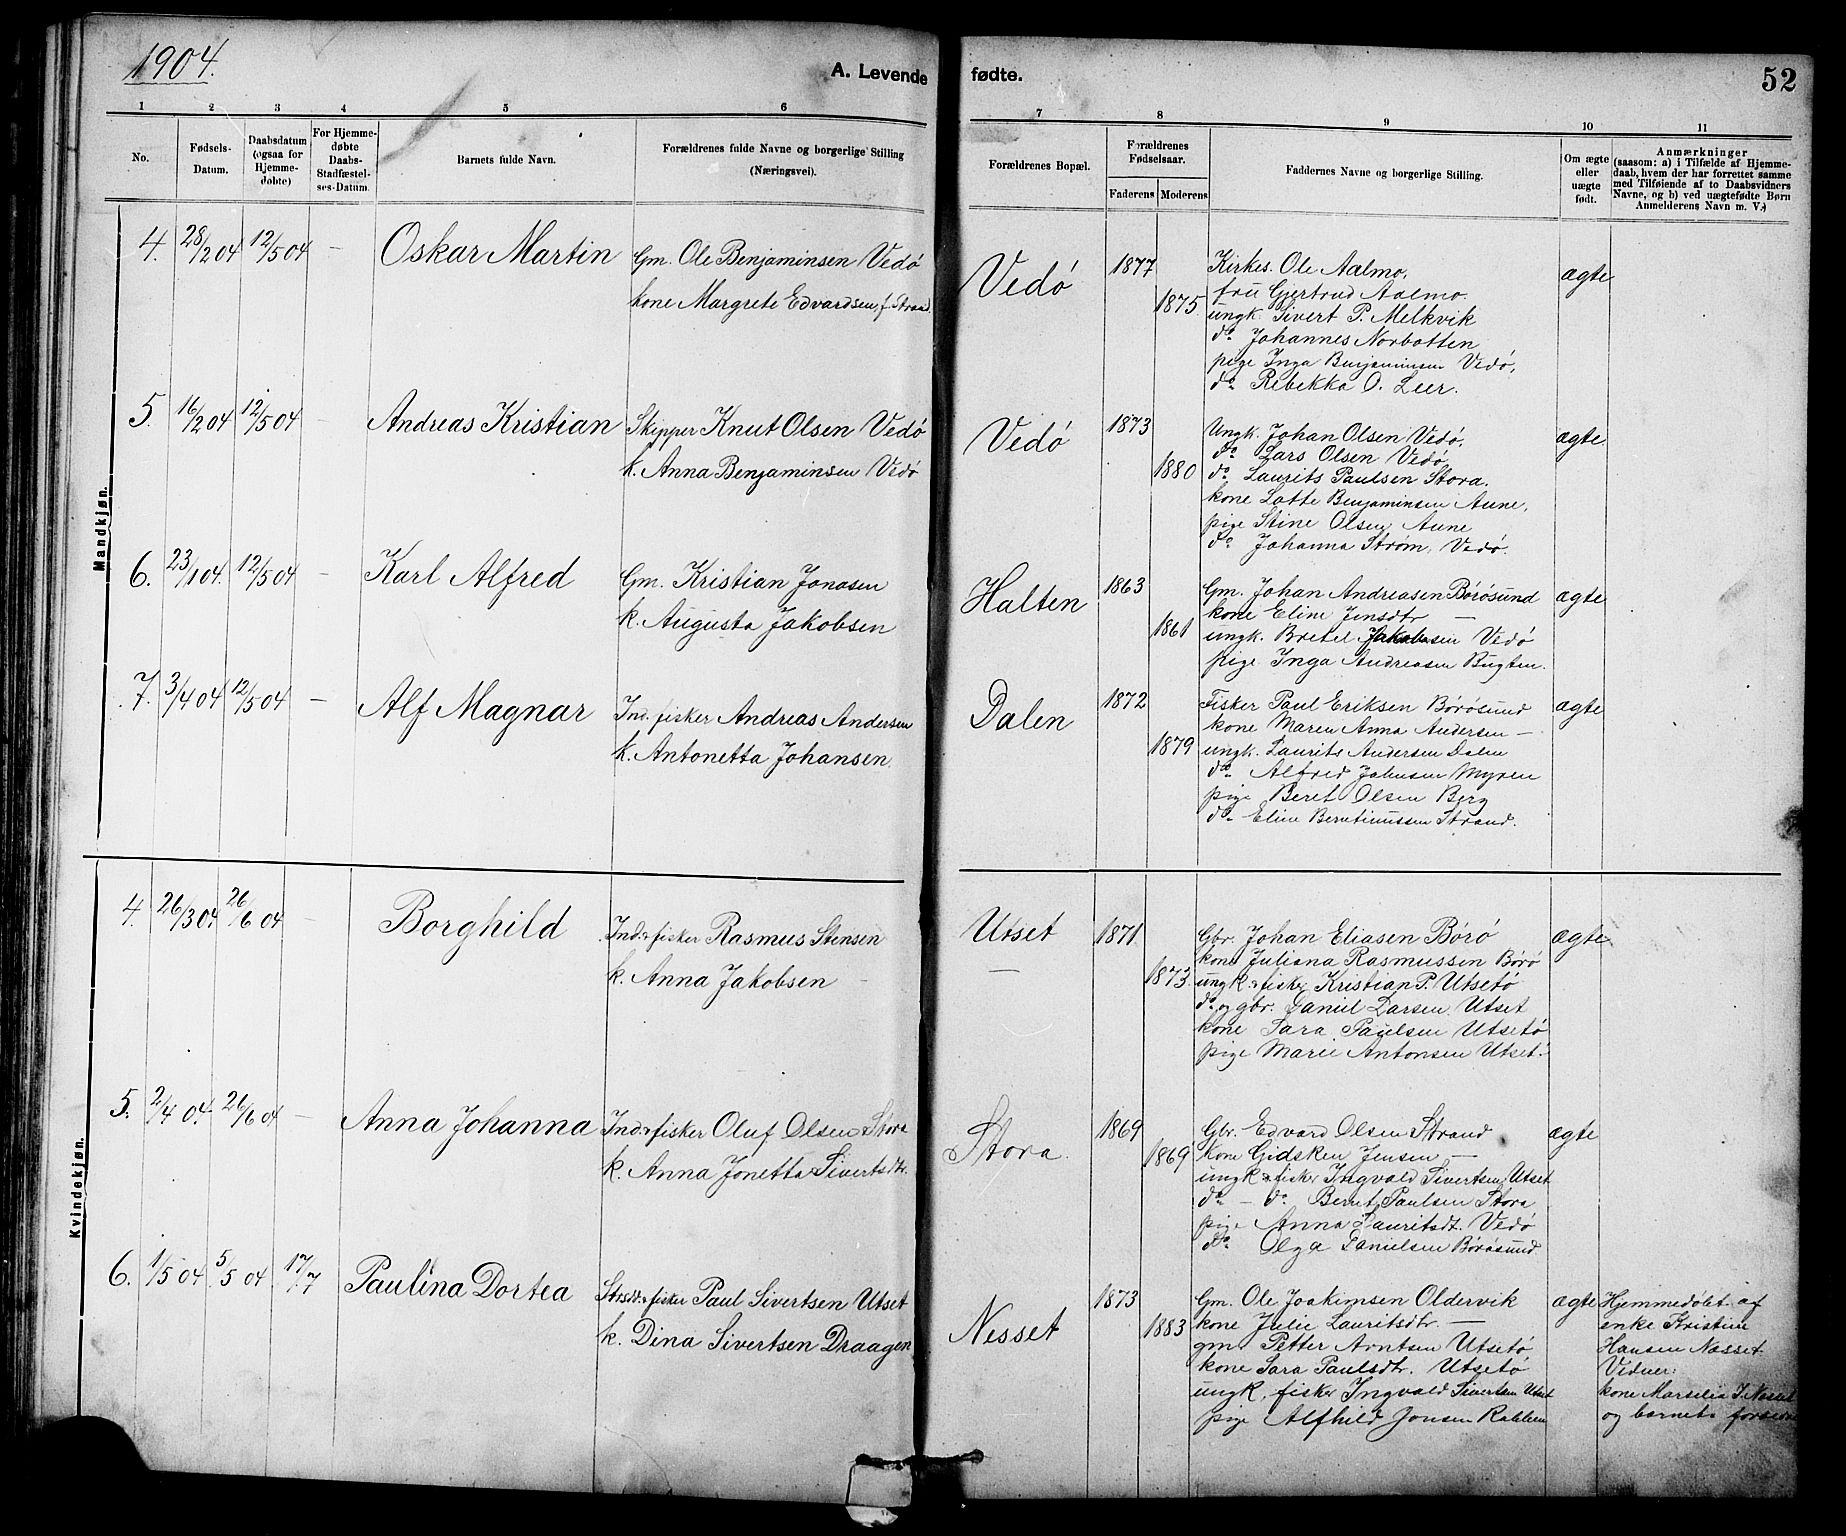 1904.
A. Levende
fødte.
52
1 2 3 4 5 6 7 8 9 10 11
No.
Fødsels-
Datum.
Daabsdatum
(ogsaa for
Hjemme-
døbte)
For Hjemme-
døbte
Daabs-
Stadfæstel-
ses-Datum.
Barnets fulde Navn.
Forældrenes fulde Navne og borgerlige Stilling
(Næringsvei).
Forældrenes Bopæl.
Forældrenes
Fødselsaar.
Faderens Moderens
Faddernes Navne og borgerlige Stilling.
Om ægte
eller
uægte
født.
Anmærkninger
(saasom: a) i Tilfælde af Hjemme-
daab, hvem der har forrettet samme
med Tilføiende af to Daabsvidners
Navne, og b) ved uægtefødte Børn
Anmelderens Navn m. V.)
Mandkjøn.
4. 28/2 04 12/5 04 – Oskar Martin
Gm. Ole Benjaminsen Vedø
kone Margrete Edvardsen, f. Strand.
Vedø 1877 1875
Kirkes. Ole Aalmo,
fru Gjertrud Aalmo.
ungk. Sivert P. Melkvik
do Johannes Norbotten
pige Inga Benjaminsen Vedø,
do Rebekka O. Leer.
ægte
5. 16/2 04 12/5 04 – Andreas Kristian
Skipper Knut Olsen Vedø
k. Anna Benjaminsen Vedø
Vedø 1873 1880
Ungk. Johan Olsen Vedø,
do Lars Olsen Vedø
do Laurits Paulsen Stora.
kone Lotte Benjaminsen Aune,
pige Stine Olsen Aune
do Johanna Strøm, Vedø.
ægte
6. 23/1 04. 12/5 04 – Karl Alfred
Gm. Kristian Jonasen
k. Augusta Jakobsen
Halten 1863 1861
Gm. Johan Andreasen Børøsund
kone Eline Jensdtr —
ungk. Bretel Jakobsen Vedø
pige Inga Andreasen Bugten.
ægte
7. 3/4 04 12/5 04 – Alf Magnar
Ind. fisker Andreas Andersen
k. Antonetta Johansen.
Dalen 1872 1879
Fisker Paul Eriksen Børøsund
kone Maren Anna Andersen —
ungk. Laurits Andersen Dalen
do Alfred Johnsen Myren
pige Beret Olsen Berg
do Eline Berntinussen Strand.
ægte
Kvindekjøn.
4. 26/3 04. 26/6 04 – Borghild
Ind. & fisker Rasmus Stensen
k. Anna Jakobsen –
Utset — 1871 1873.
Gbr. Johan Eliasen Børø
kone Juliana Rasmussen Børø
ungk. & fisker Kristian P. Utsetø
do og gbr. Daniel Larsen Utset
kone Sara Paulsen Utsetø
pige Marie Antonsen Utset.
ægte
5. 2/4 04. 26/6 04 – Anna Johanna
Ind. & fisker Oluf Olsen Stora
k. Anna Jonetta Sivertsdtr.
Stora. 1869 1869
Gbr. Edvard Olsen Strand
Kone Gidsken Jensen —
ungk. & fisker Ingvald Sivertsen Utset
do – do Bernt Paulsen Stora
pige Anna Lauritsdt. Vedø
do Olga Danielsen Børøsund
ægte
6. 1/5 04. 5/5 04 17/7 Paulina Dortea
Strsd. & fisker Paul Sivertsen Utset
k. Dina Sivertsen Draagen
Nesset 1873 1883
Gm. Ole Joakimsen Oldervik
kone Julie Lauritsdtr. —
gm Petter Arntsen Utsetø
kone Sara Paulsdtr. Utsetø
ungk. fisker Ingvald Sivertsen Utset
pige Alfhild Jonsen Rabben
ægte
Hjemmedøbt af
enke Kristine
Hansen Nasset.
Vidner:
kone Marselia J. Nasset
og barnets